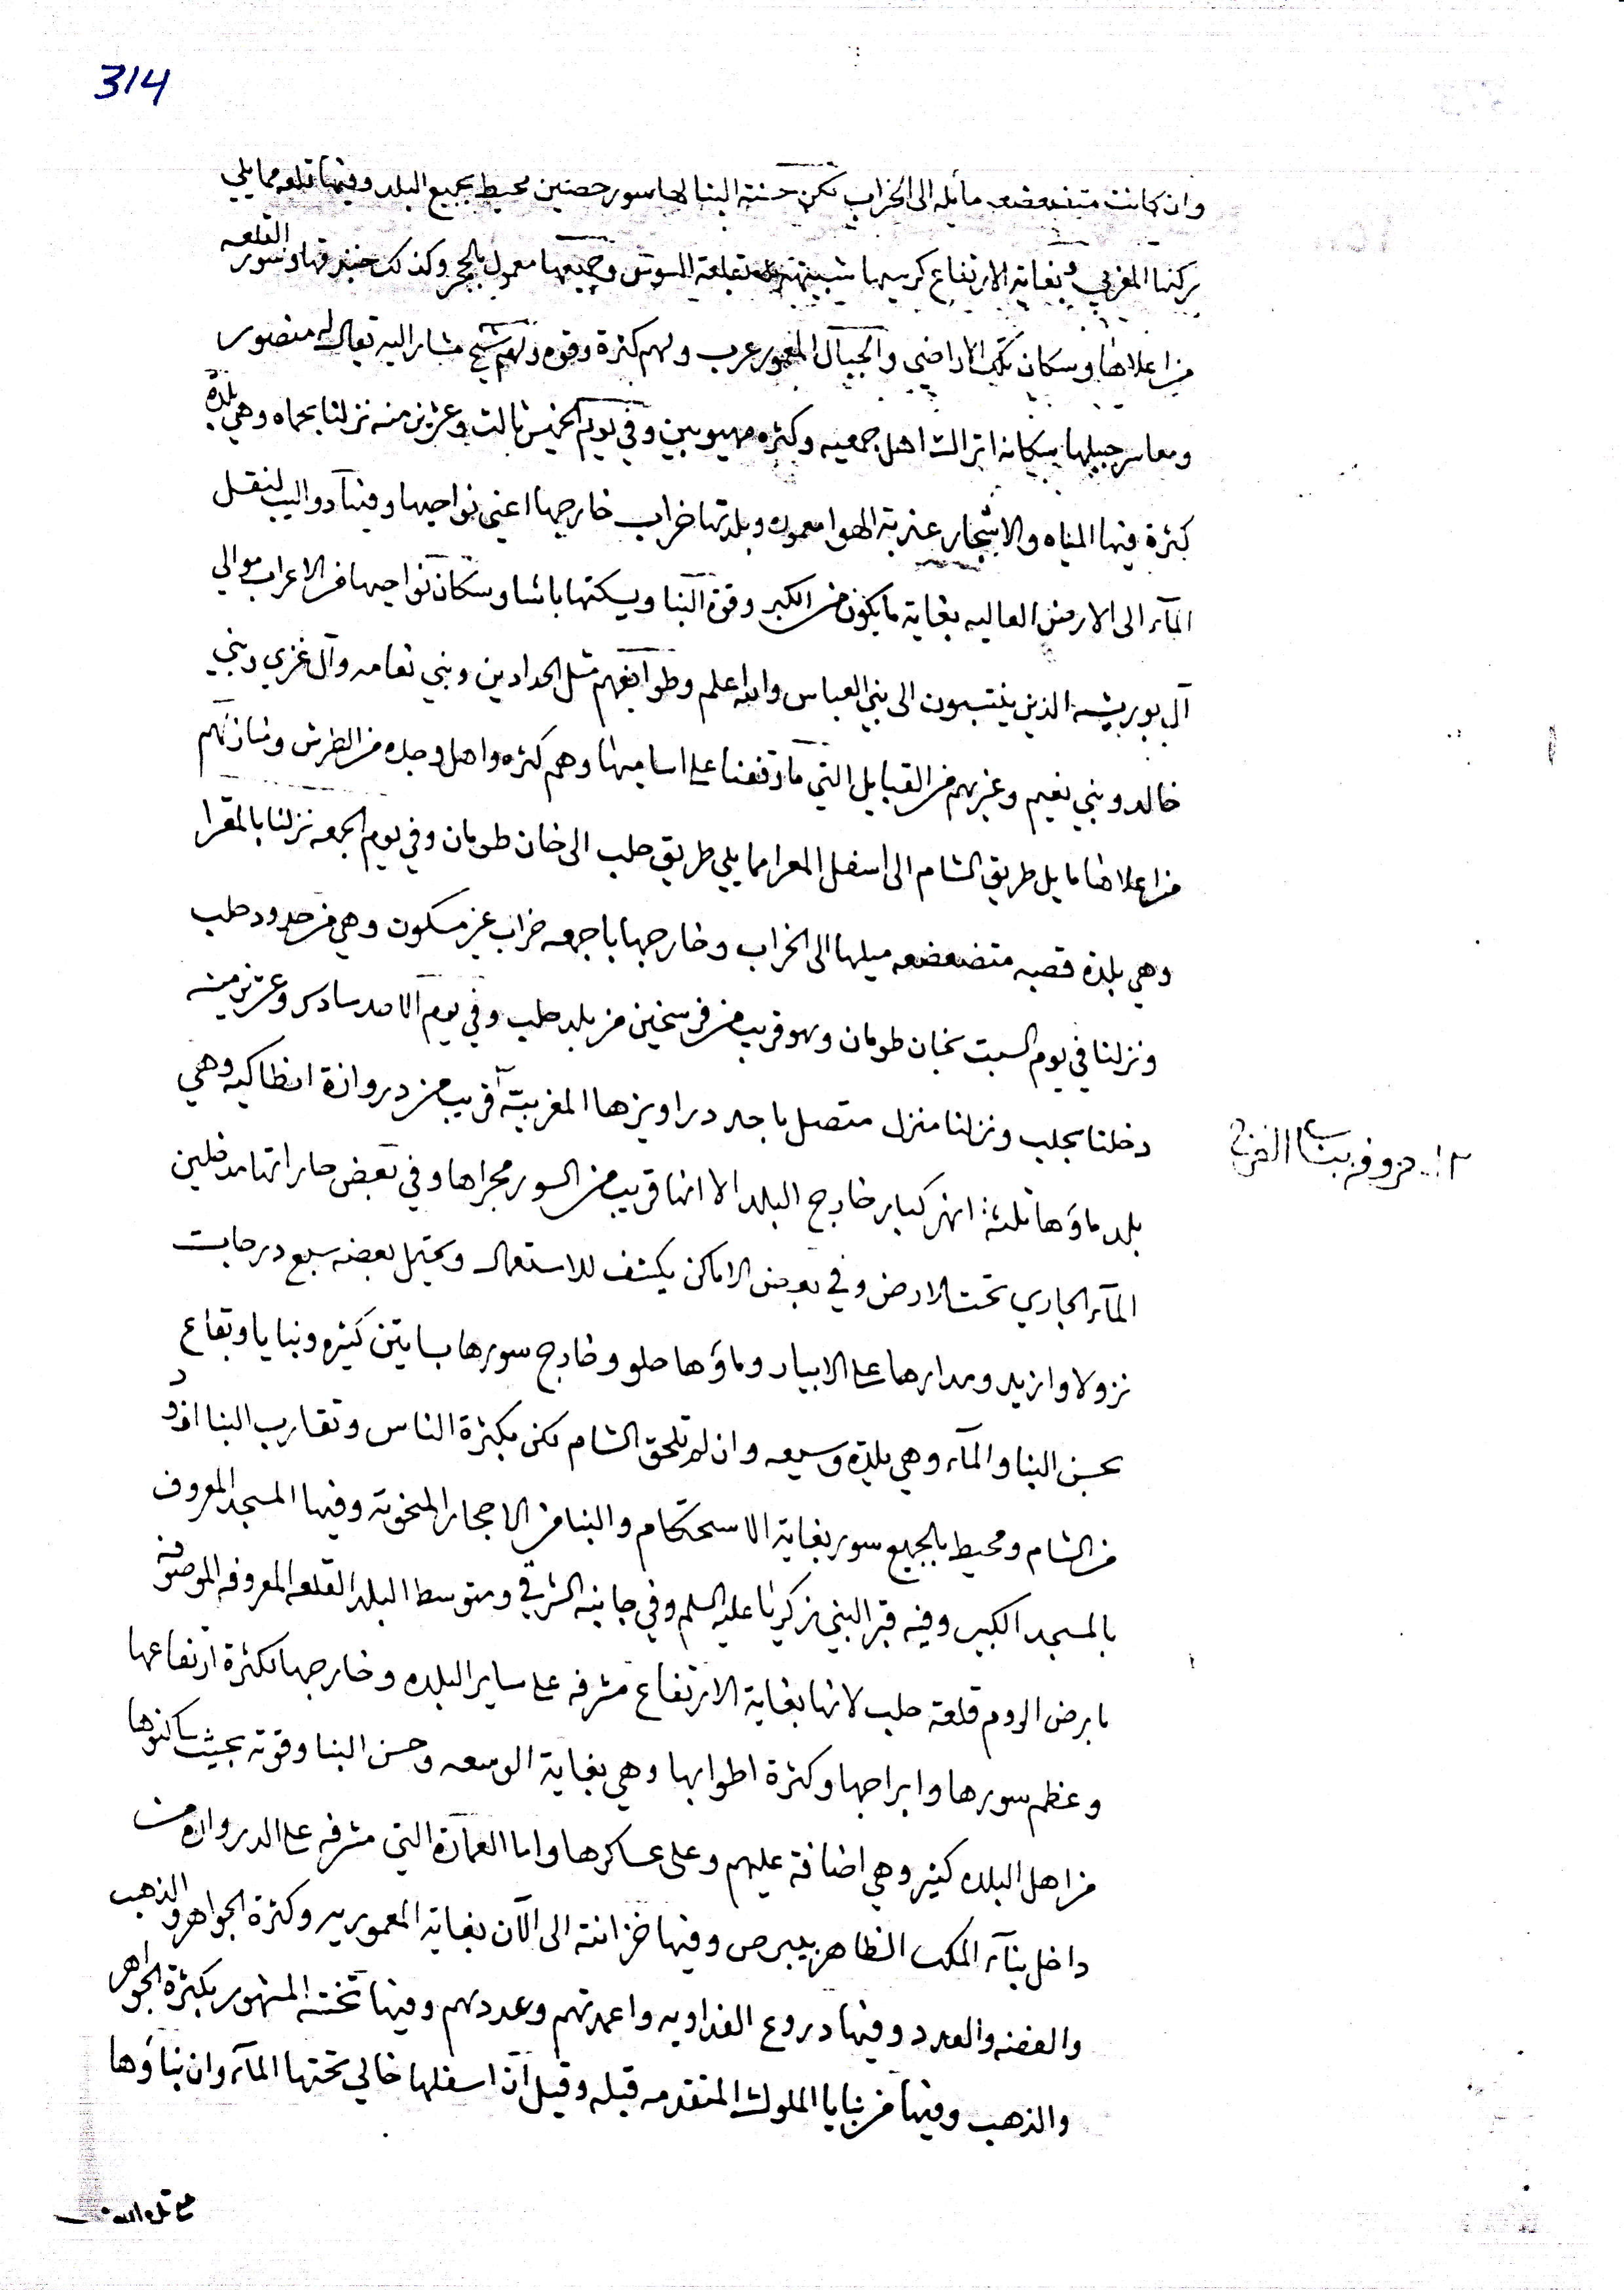 314
وان كانت متضعضعه مايله الى الخراب لكن حسنة البنا لها سور حصين محيط بجميع البلد وفيها قلعه مما يلي
ركنها المغربي وبغاية الارتفاع كرسيها شبيهة بقلعة السوس وجميعها معمول بالحجر وكذلك خندقها وسور القلعه
من اعلاها وسكان تلك الاراضي والجبال المعمور عرب ولهم كثرة وقوه ولهم شيخ مشار اليه يقال له منصور
ومعاسر جبيلها سكانه اتراك اهل جمعيه وكثره مهيوبين وفي يوم الخميس ثالث وعشرين منه نزلنا بحماه وهي بلدة
كثرة فيها المياه والاشجار عذبة الهوا معموره وبلدتها خراب خارجها اعني نواحيها وفيها دواليب لنقل
المآء الى الارض العاليه بغاية ما يكون من الكبر وقوة البنا ويسكنها باشا وسكان نواحيها من الاعراب موالي
آل بو ريشه الذين ينتسبون الى بني العباس والله اعلم وطوايفهم مثل الحدادين وبني نعامه وآل غزي وبني
خالد وبني نعيم وغيرهم من القبايل التي ما وقفنا على اساميها وهم كثره واهل وجده من الطرش ومنازلهم
من اعلاها ما يلي طريق الشام الى اسفل المعرا مما يلي طريق حلب الى خان طومان وفي يوم الجمعه نزلنا بالمعرا
وهي بلدة قصبه متضعضعه ميلها الى الخراب وخارجها باجمعه خراب غير مسكون وهي من حدود حلب
ونزلنا في يوم السبت بخان طومان وهو قريب من فرسخين من بلد حلب وفي يوم الاحد سادس وعشرين منه
دخلنا بحلب ونزلنا منزل متصل باحد دراويزها المغربيّة قريب من دروازة انطاكيه وهي
بلد ماؤها ثلثة انهر كبار خارج البلد الا انها قريب من السور مجراها وفي بعض حاراتها مدخلين
المآء الجاري تحت الارض وفي بعض الاماكن يكشف للاستعمال ويحتمل بعضه سبع درجات
نزولا وازيد ومدارها على الابيار وماؤها حلو وخارج سورها بساتين كثيره وبنايا وبقاع
بحسن البنا والمآء وهي بلدة وسيعه وان لم تلحق الشام لكن بكثرة الناس وتقارب البنا ازود
من الشام ومحيط بالجميع سور بغاية الاستحكام والبنا من الاحجار المنحوته وفيها المسجد المعروف
بالمسجد الكبير وفيه قبر النبي زكريا عليه السلم وفي جانبه الشرقي ومتوسط البلد القلعه المعروفه الموصوفه
بارض الروم قلعة حلب لانها بغاية الارتفاع مشرفه على ساير البلده وخارجها لكثرة ارتفاعها
وعظم سورها وابراجها وكثرة اطوابها وهي بغاية الوسعه وحسن البنا وقوته بحيث ساكنوها
من اهل البلده كثير وهي اضافة عليهم وعلى عساكرها واما العمارة التي مشرفه على الدروازه من
داخل بنآء الملك الظاهر بيبرص وفيها خزانته الى الآن بغاية المعموريه وكثرة الجواهر والذهب
والفضه والعدد وفيها دروع الفداويه واعمدتهم وعددهم وفيها تخته المشهور بكثرة الجواهر
والذهب وفيها من بنايا الملوك المتقدمه قبله وقيل ان اسفلها خالي تحتها المآء وان بناؤها